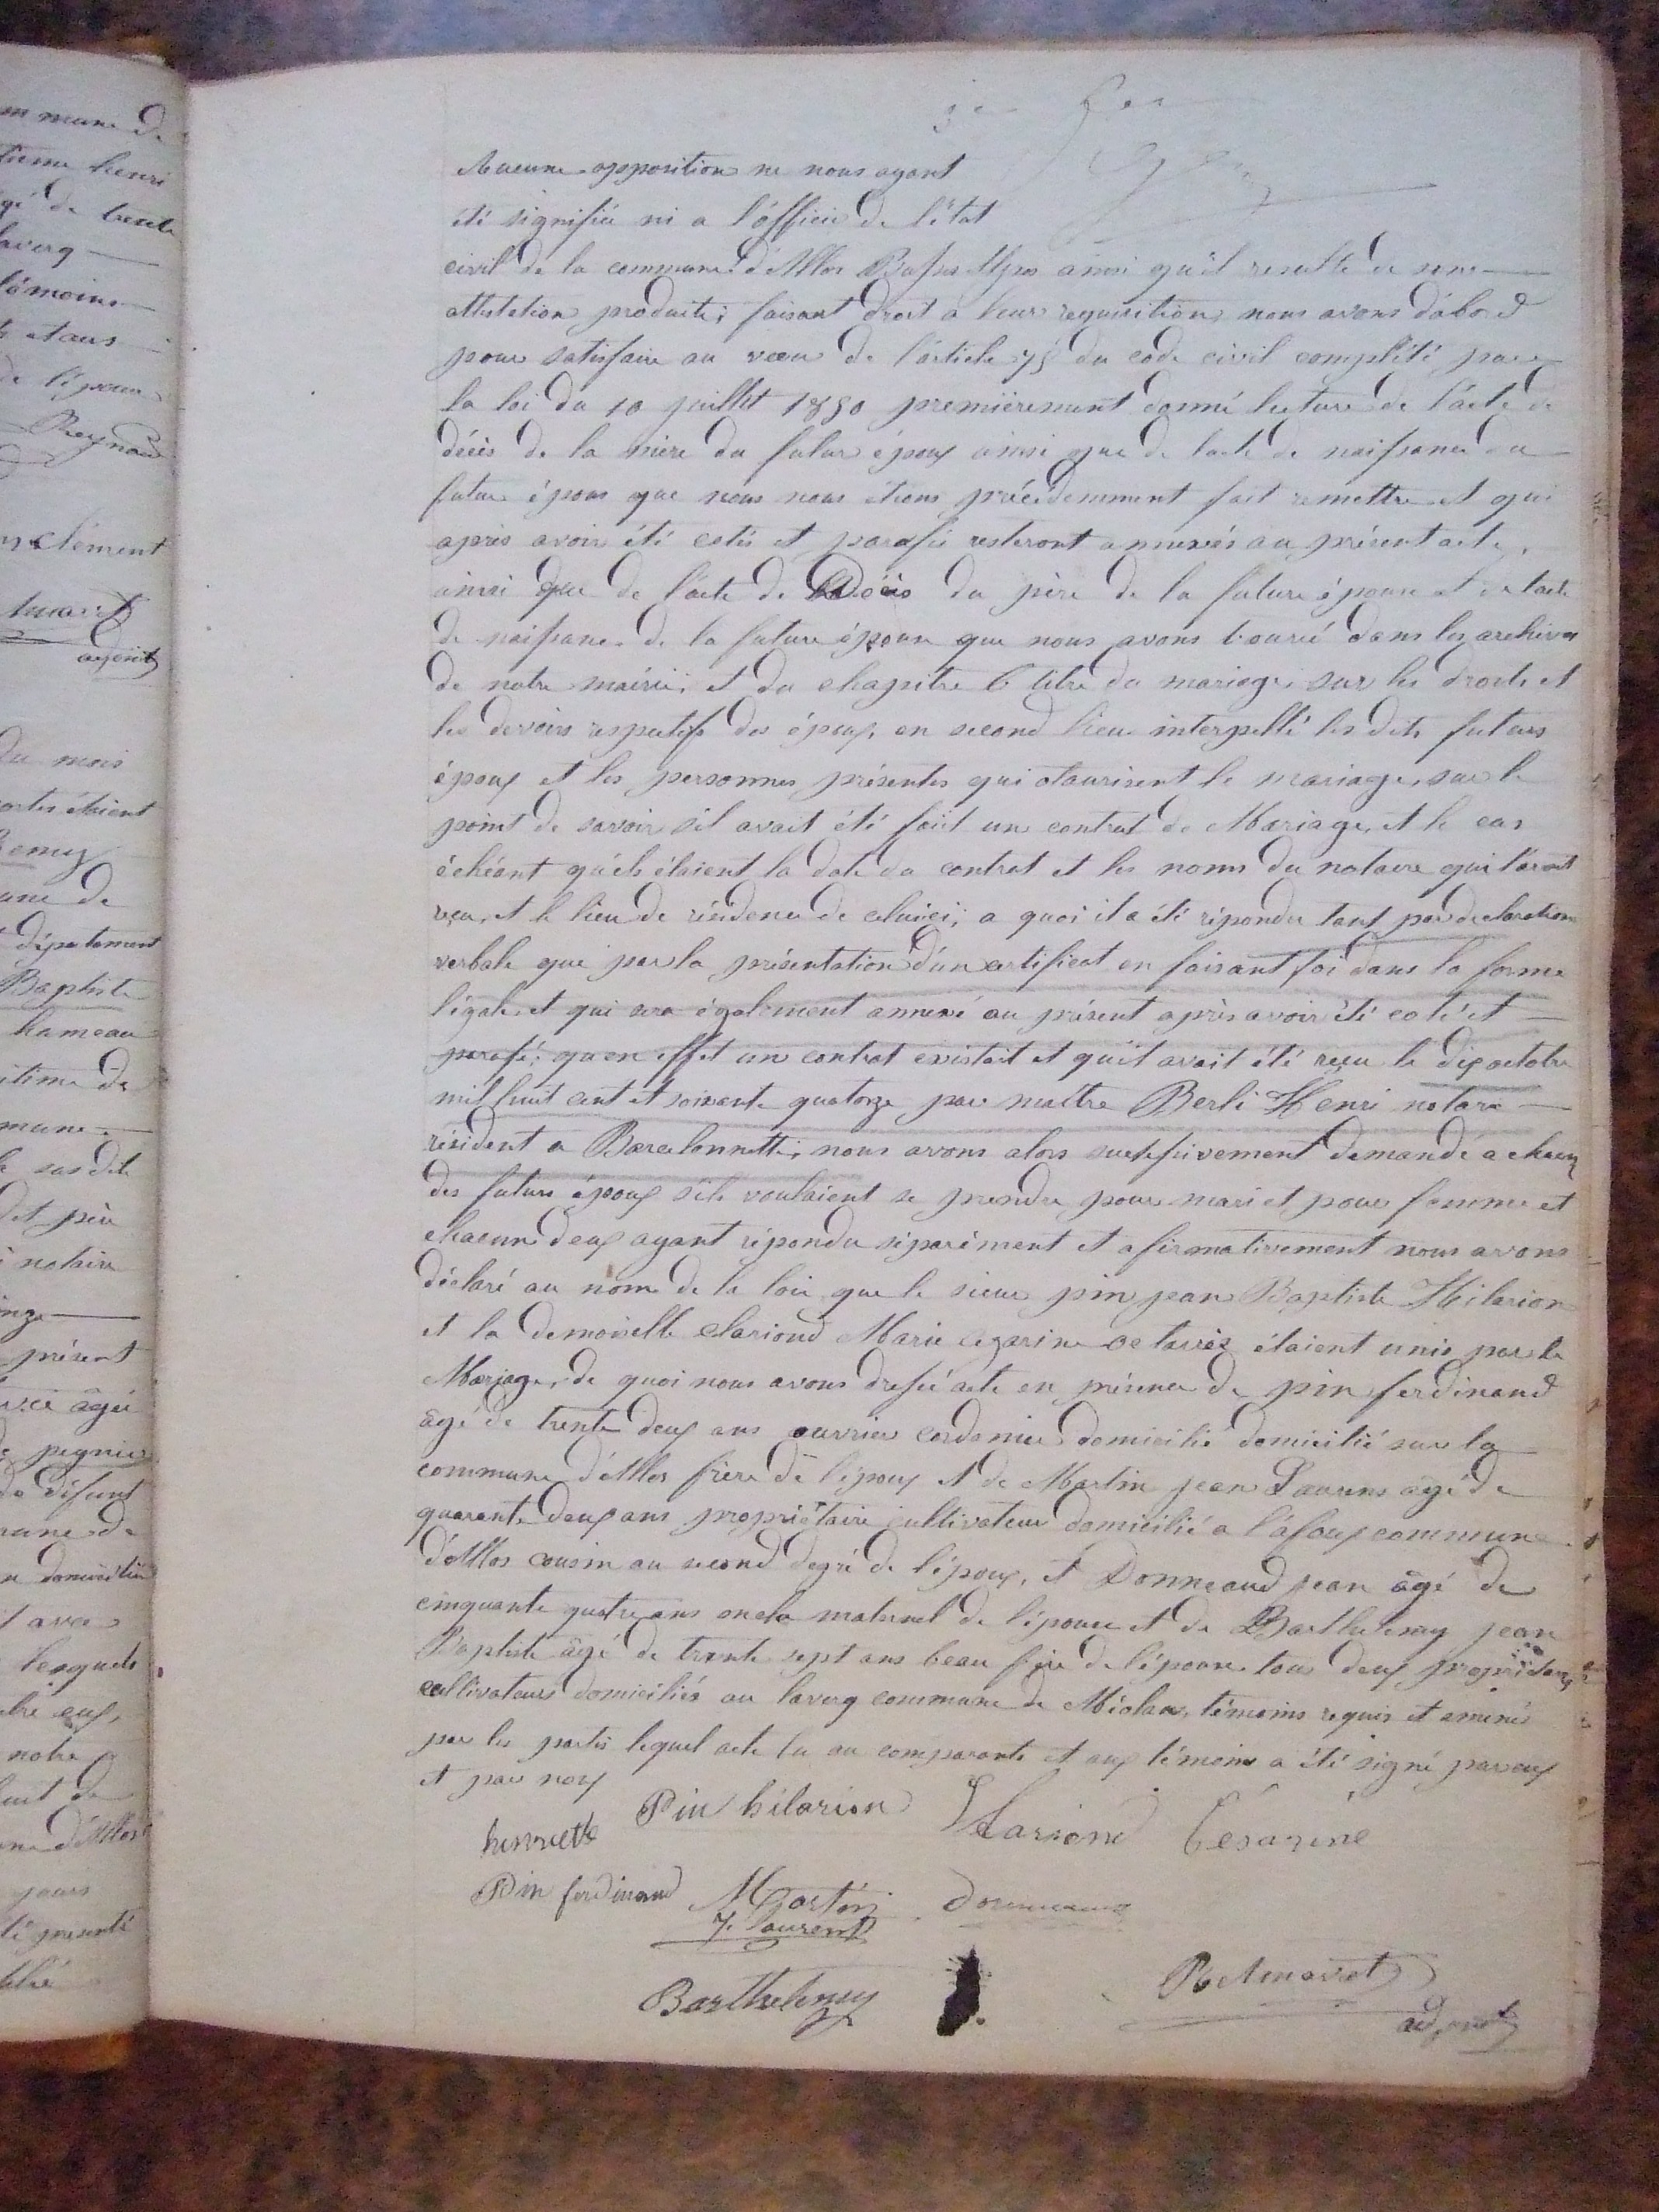 mmune de
tienne henri
gé de trente
laverq
témoins
et aus
de l'épou
Reynaud
clément
adjoint
du mois
ortes étaient
Remy
une de
département
Baptiste
hameau
itime de
mune
la sus dite
det père
notaire
onze
présent
âgée
de défunt
mune de
domicilié
avec
lesquels
tre eux,
notre
d'Allos
jours
té présenté
Aucune opposition ne nous ayant
été signifiée ni a l'officier de l'état
civil de la commune d'Allos Basses Alpes ainsi qu'il resulte de
attestation produite; faisant droit a leur requisition nous avons d'abord
pour satisfaire au voeu de l'article 75 du code civil complété par
la loi du 10 juillet 1850 premièrement donné lecture de l'acte de
décès de la mère du futur époux ainsi que de l'acte de naissance du
futur époux que nous nous étions précédemment fait remettre et qui
après avoir été cotés et parafé resteront annexés au présent acte,
ainsi que de l'acte de Décès du père de la future épouse et de l'acte
de naissance de la future épouse que nous avons trouvé dans les archives
de notre mairie, et du chapitre 6 titre du mariage, sur les droits et
les devoirs respectifs des époux, en second lieu interpellé les dits futurs
époux et les personnes présentes qui otaurisent le mariage, sur le
point de savoir s'il avait été fait un contrat de Mariage, et le cas
échéant qu'els étaient la date du contrat et les noms du notaire qui l'avait
reçu, et le lieu de résidence de celuici; a quoi il a été répondu tant par declaration
verbale que par la présentation d'un certificat en faisant foi dans la forme
légale et qui sera également annexé au présent après avoir été coté et
parafé; qu'en effet un contrat existait et qu'il avait été reçu le dix octobre
mil huit cent et soixante quatorze par maître Berli Henri notaire
résident a Barcelonnette; nous avons alors successivement demandé a chacun
des futurs époux s'ils voulaient se prendre pour mari et pour femme et
chacun d'eux ayant répondu séparément et afirmativement nous avons
déclaré au nom de la loi que le sieur pin jean Baptiste Hilarion
et la demoiselle clariond Marie cezarine octavie étaient unis par le
Mariage, de quoi nous avons dressé acte en présence de pin ferdinand
âgé de trente deux ans ouvrier cordonier domicilié domicilié sur la
commune d'Allos frère de l'époux et de Martin jean Laurens âgé de
quarante deux ans propriétaire cultivateur domicilié a la foux commune
d'Allos cousin au second degré de l'époux, et Donneaud jean âgé de
cinquante quatre ans oncle maternel de l'épouse et de Barthelemy jean
Baptiste âgé de trente sept ans beau frère de l'épouse tous deux propriétaires
cultivateurs domiciliés au laverq commune de Méolans, témoins requis et amenés
par les parties lequel acte lu au comparants et aux témoins a été signé par eux
et par nous
Pin hilarion Clariond Césarine
henriette
Pin ferdinand Martin Donneaud
J. laurent
Barthelemy
adjoint